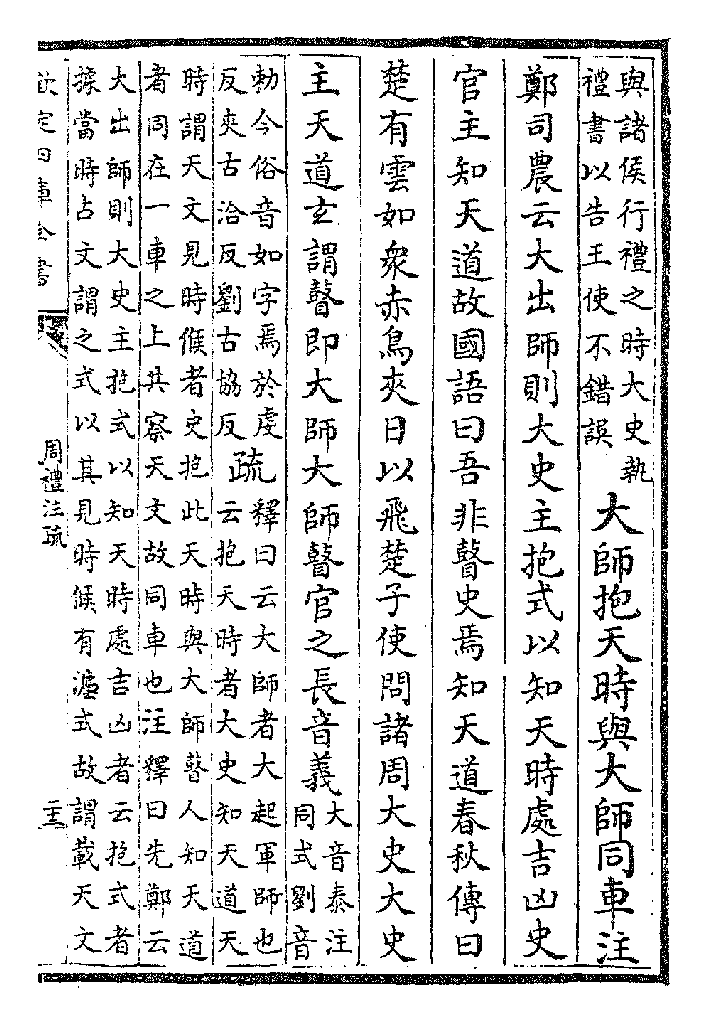 與諸侯行禮之時大史執
禮書以告王使不錯誤
大師抱天時與大師同車注
鄭司農云大出師則大史主抱式以知天時處吉凶史
官主知天道故國語曰吾非瞽史焉知天道春秋傳曰
楚有雲如衆赤鳥夾日以飛楚子使問諸周大史大史
主天道玄謂瞽即大師大師瞽官之長音義
大音泰注
同式劉音
勑今俗音如字焉於虔
反夾古洽反劉古協反
疏
釋曰云大師者大起軍師也
云抱天時者大史知天道天
時謂天文見時候者史抱此天時與大師瞽人知天道
者同在一車之上共察天文故同車也注釋曰先鄭云
大出師則大史主抱式以知天時處吉凶者云抱式者
據當時占文謂之式以其見時候有灋式故謂載天文
欽定四庫全書
周禮注疏